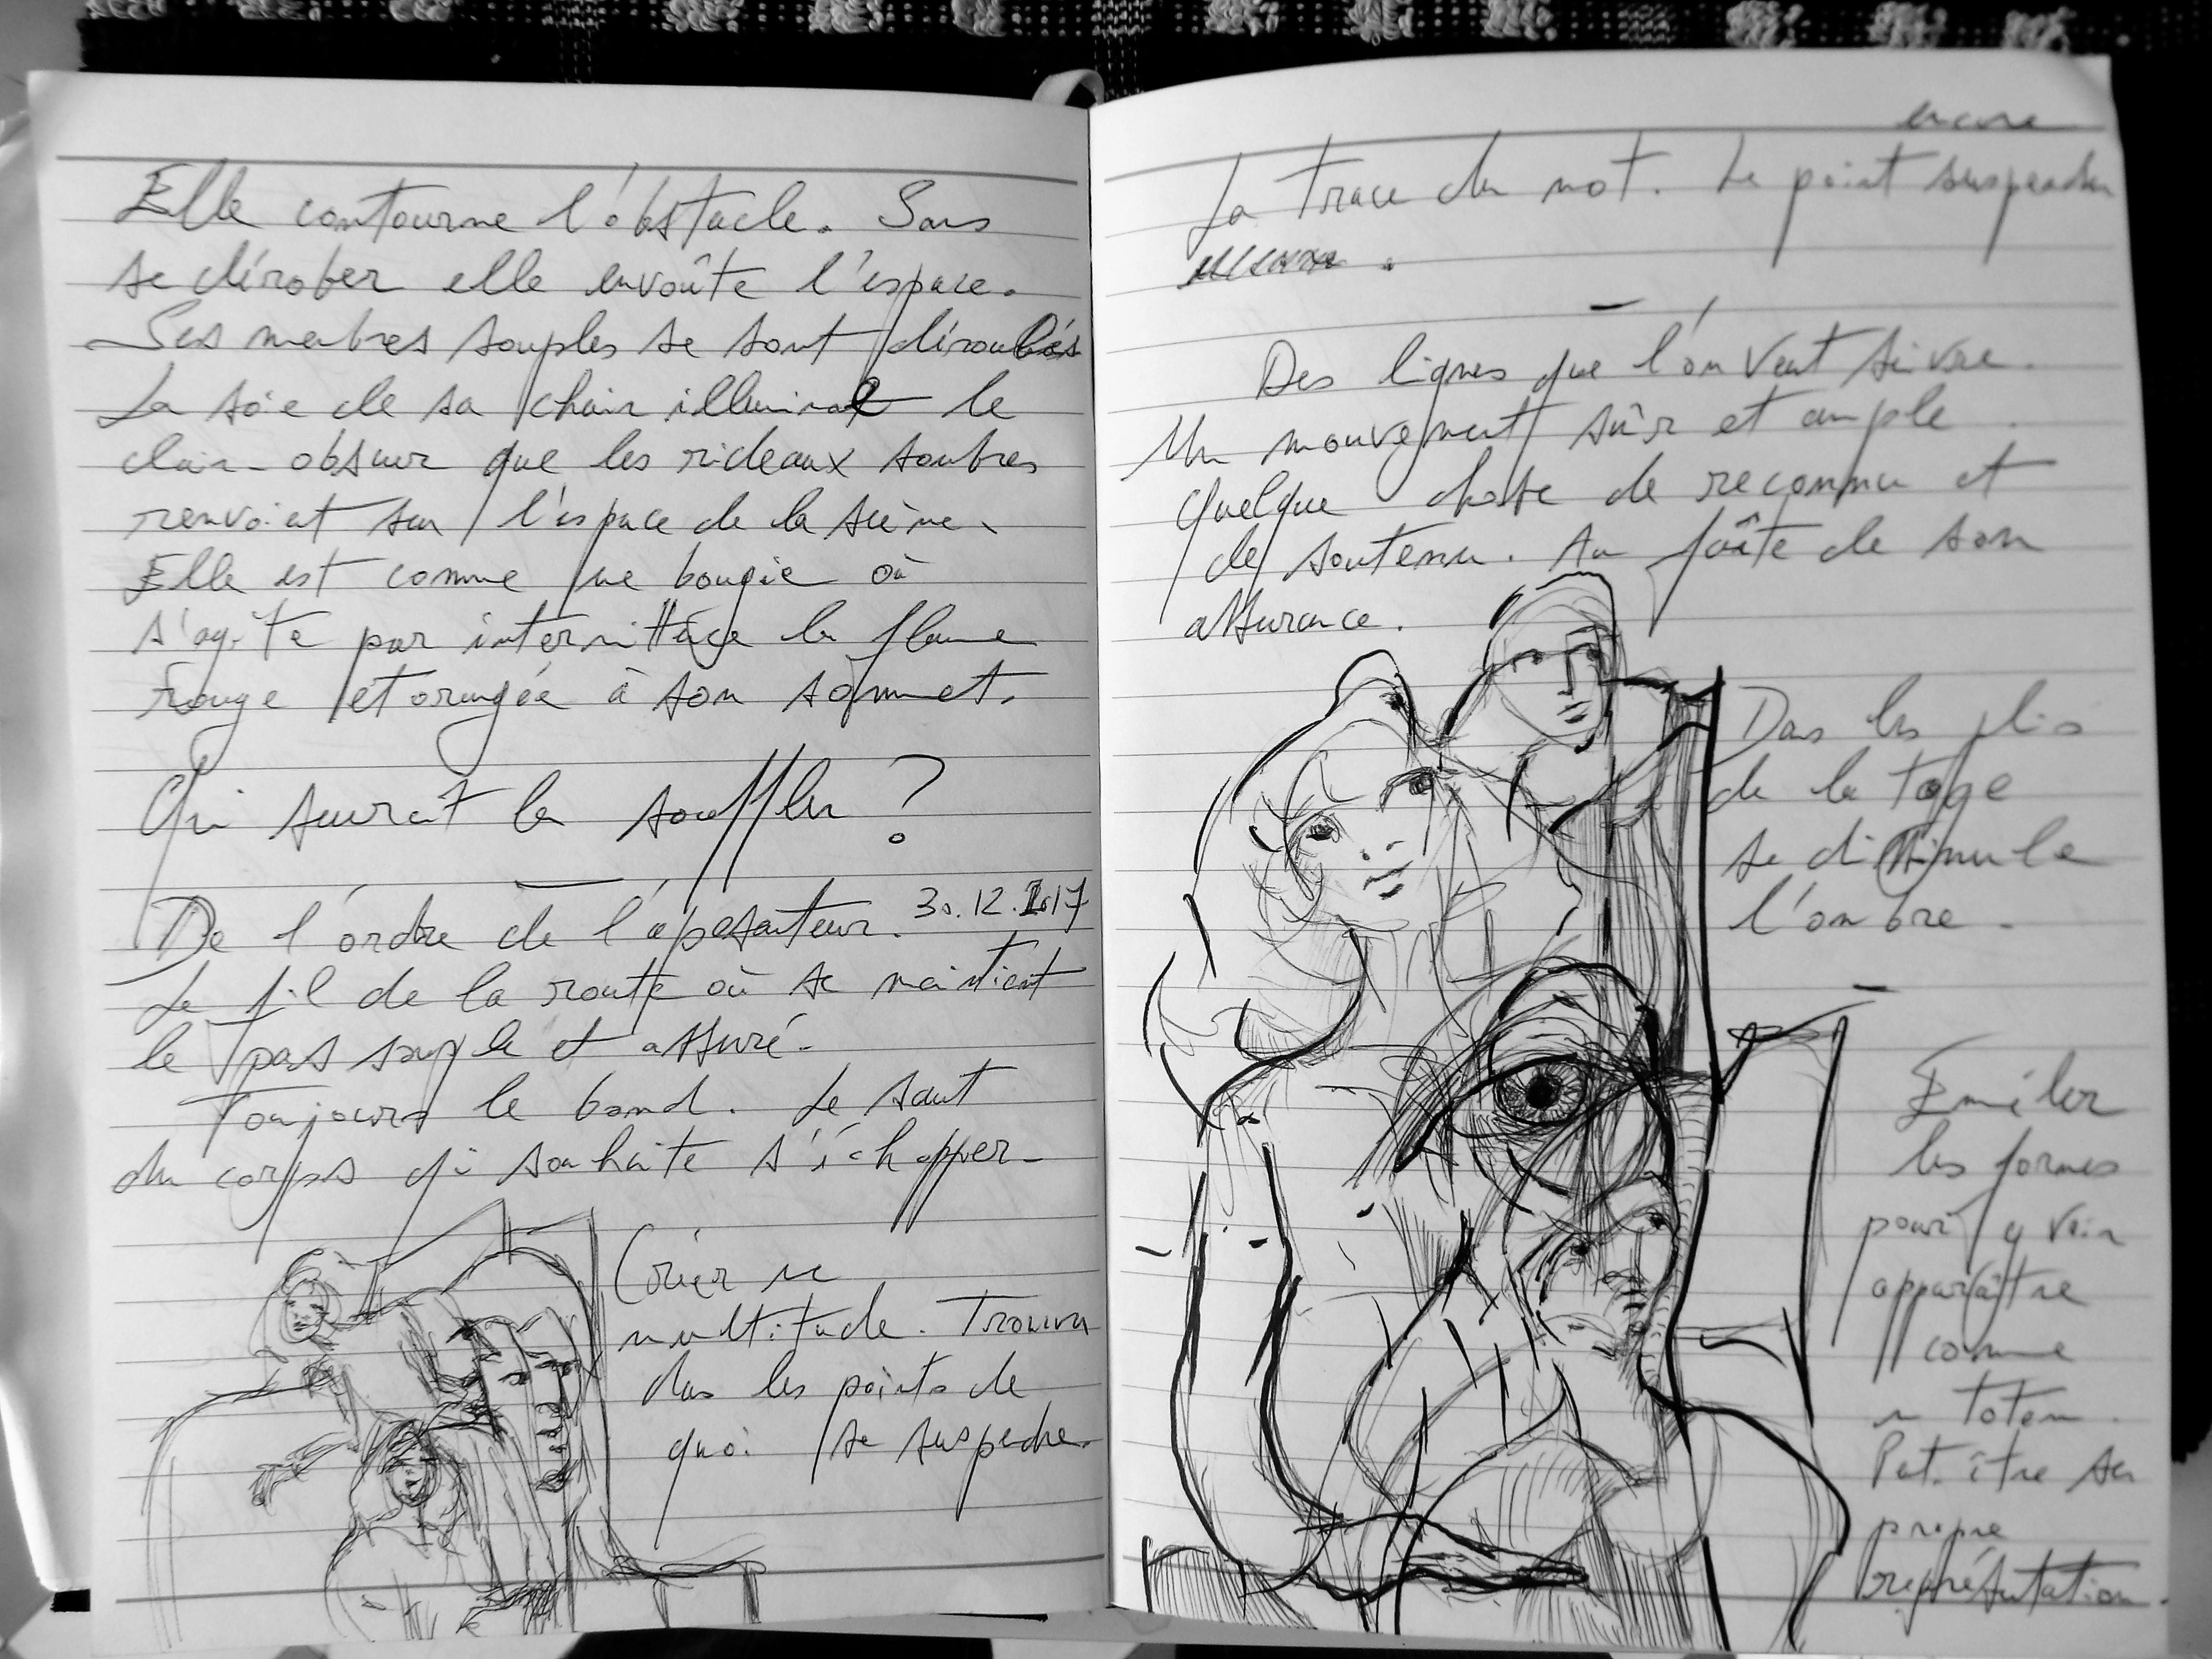 Elle contourne l'obstacle. Sans
se dérober elle envoûte l'espace.
Ses membres souples se sont déroulés
La soie de sa chair illumine le
clair-obscur que les rideaux sombres
renvoient sur l'espace de la scène.
Elle est comme une bougie où
s'agite par intermittence la flamme
rouge et orangée à son sommet.
Qui saurait la souffler ?
De l'ordre de l'apesanteur. 30.12.2017
Le fil de la route où se maintient
le pas souple et assuré.
Toujours le bond. Le saut
du corps qui souhaite s'échapper.
Créer une
multitude. Trouver
dans les points de
quoi se suspendre.
encore
La trace du mot. Le point suspendu
Des lignes que l'on veut suivre.
Un mouvement sûr et ample
Quelque chose de reconnu et
de soutenu. Au faîte de son
assurance.
Dans les plis
de la toge
se dissimule
l'ombre.
Emêler
les formes
pour y voir
apparaître
comme
un totem.
Peut-être sa
propre
représentation.